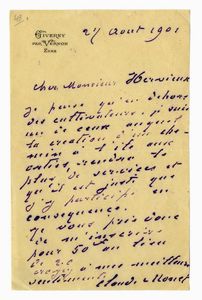 GIVERNY
PAR VERNON
EURE
27 Août 1901
Cher Monsieur Hervieux
Je pense qu'en dehors
des cultivateurs je suis
un de ceux auquel
la création d'un che-
min à l'île aux
orties, rendra le
plus de services et
qu'il est juste que
j'y participe en
conséquence.
Je vous prie donc
de m'inscrire
pour 50 au lieu
de 20
croyez à mes meilleurs
sentiments Claude Monet